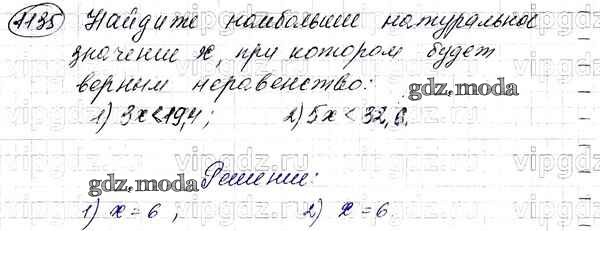 1135 Найдите наибольшее натуральное
значение x, при котором будет
верным неравенство:
gdz.moda
1) 3x<19,4; 2) 5x<32,6.
vipgdz.ru
gdz.moda Решение:
1) x=6 ; 2) x=6.